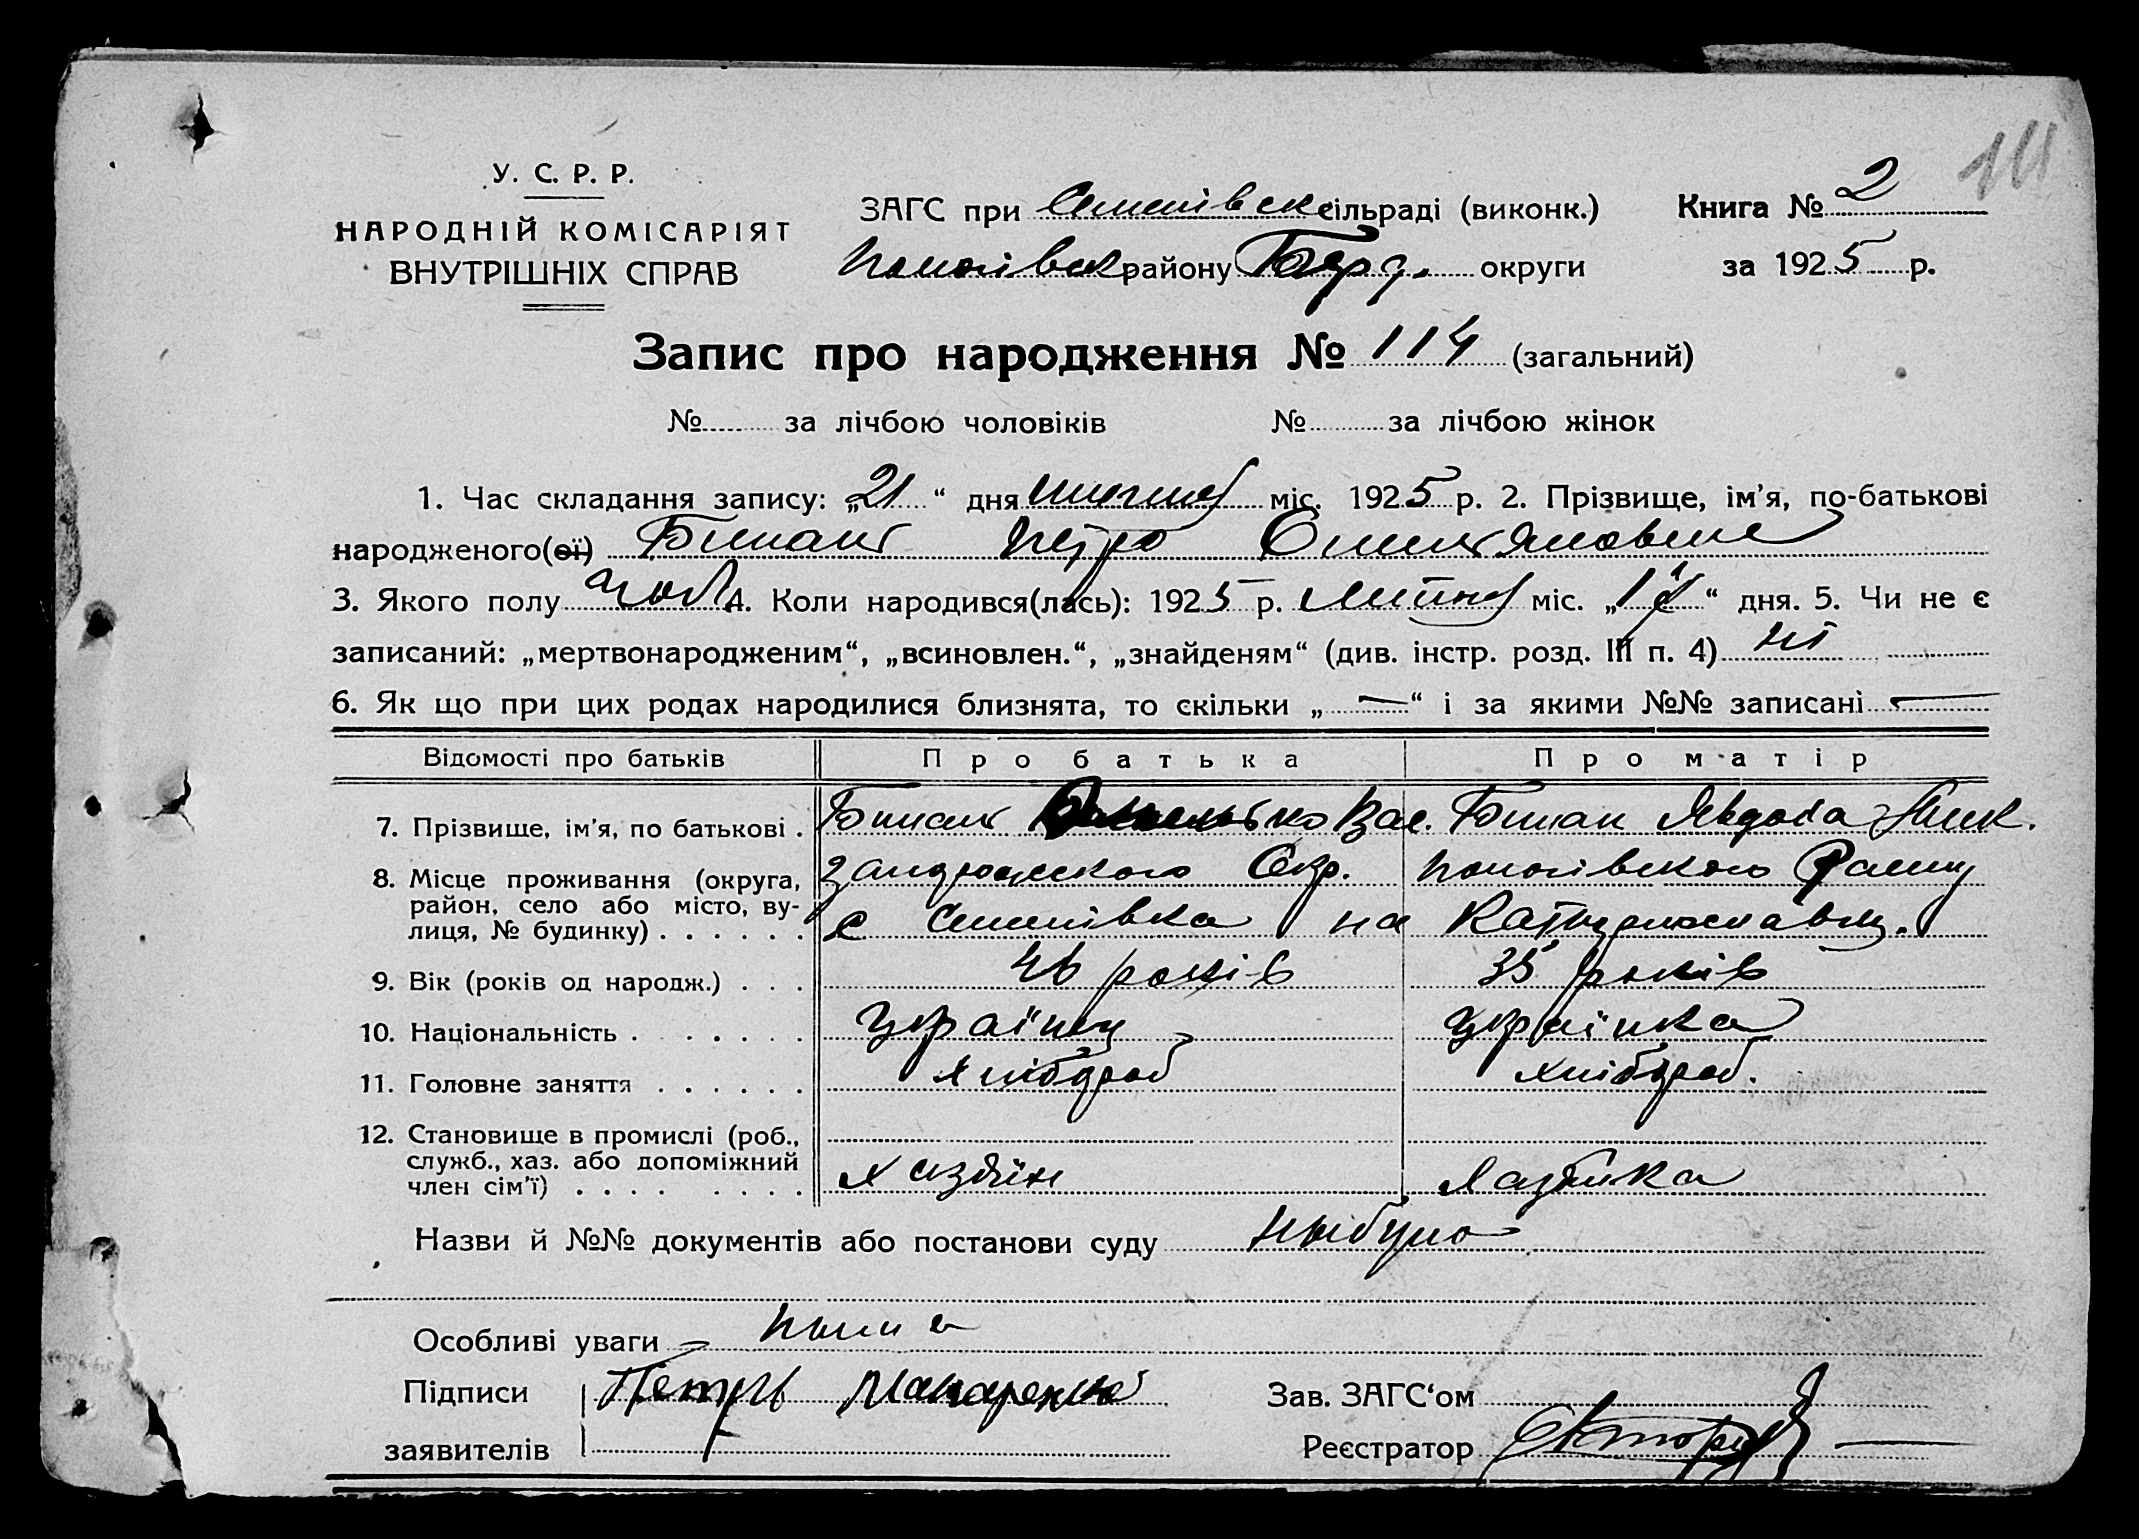 111
У. С. Р. Р.
НАРОДНІЙ КОМІСАРІЯТ
ВНУТРІШНІХ СПРАВ
ЗАГС при Семенівск сільраді (виконк.)
Пологівск району Берд. округи
Книга № 2
за 1925 р.
Запис про народження № 114 (загальний)
№ за лічбою чоловіків № за лічбою жінок
1. Час складання запису: „21“ дня міс. 1925 р. 2. Прізвище, ім'я, по-батькові
народженого(ої) Петро
3. Якого полу чол. 4. Коли народився(лась): 1925 р. Липня міс. „ “ дня. 5. Чи не є
записаний: „мертвонародженим“, „всиновлен.“, „знайденям“ (див. інстр. розд. III п. 4) ні
6. Як що при цих родах народилися близнята, то скільки „—“ і за якими №№ записані —
Відомості про батьків Про батька Про матір
7. Прізвище, ім'я, по батькові . Вас. Явдоха
8. Місце проживання (округа, район, село або місто, вулиця, № будинку) . . . . . . Окр. Пологівского Району
с Семенівка на
9. Вік (років од народж.) . . . 46 років 35 років
10. Національність . . . . . . Українец Українка
11. Головне заняття . . . . . . хлібороб хлібороб.
12. Становище в промислі (роб., служб., хаз. або допоміжний член сім'ї) . . . . . . . . хазяїн хазяйка
Назви й №№ документів або постанови суду небуло
Особливі уваги — нема
Підписи Петръ Макаренко Зав. ЗАГС‘ом
заявителів Реєстратор